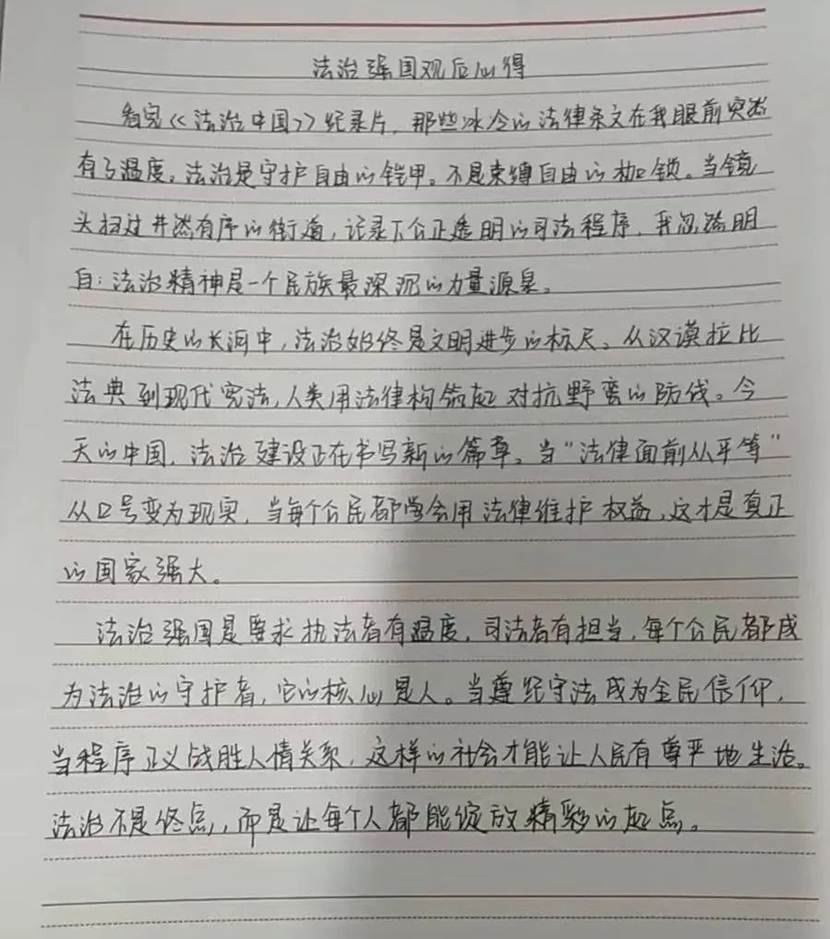 法治强国观后心得
看完《法治中国》纪录片，那些冰冷的法律条文在我眼前突然
有了温度。法治是守护自由的铠甲。不是束缚自由的枷锁。当镜
头扫过井然有序的街道，记录下公正透明的司法程序，我忽然明
白：法治精神是一个民族最深沉的力量源泉。
在历史的长河中，法治始终是文明进步的标尺。从汉谟拉比
法典到现代宪法，人类用法律构筑起对抗野蛮的防线。今
天的中国，法治建设正在书写新的篇章。当“法律面前人人平等”
从口号变为现实，当每个公民都学会用法律维护权益，这才是真正
的国家强大。
法治强国是要求执法者有温度，司法者有担当，每个公民都成
为法治的守护者，它的核心是人。当遵纪守法成为全民信仰，
当程序正义战胜人情关系，这样的社会才能让人民有尊严地生活。
法治不是终点，而是让每个人都能绽放精彩的起点。